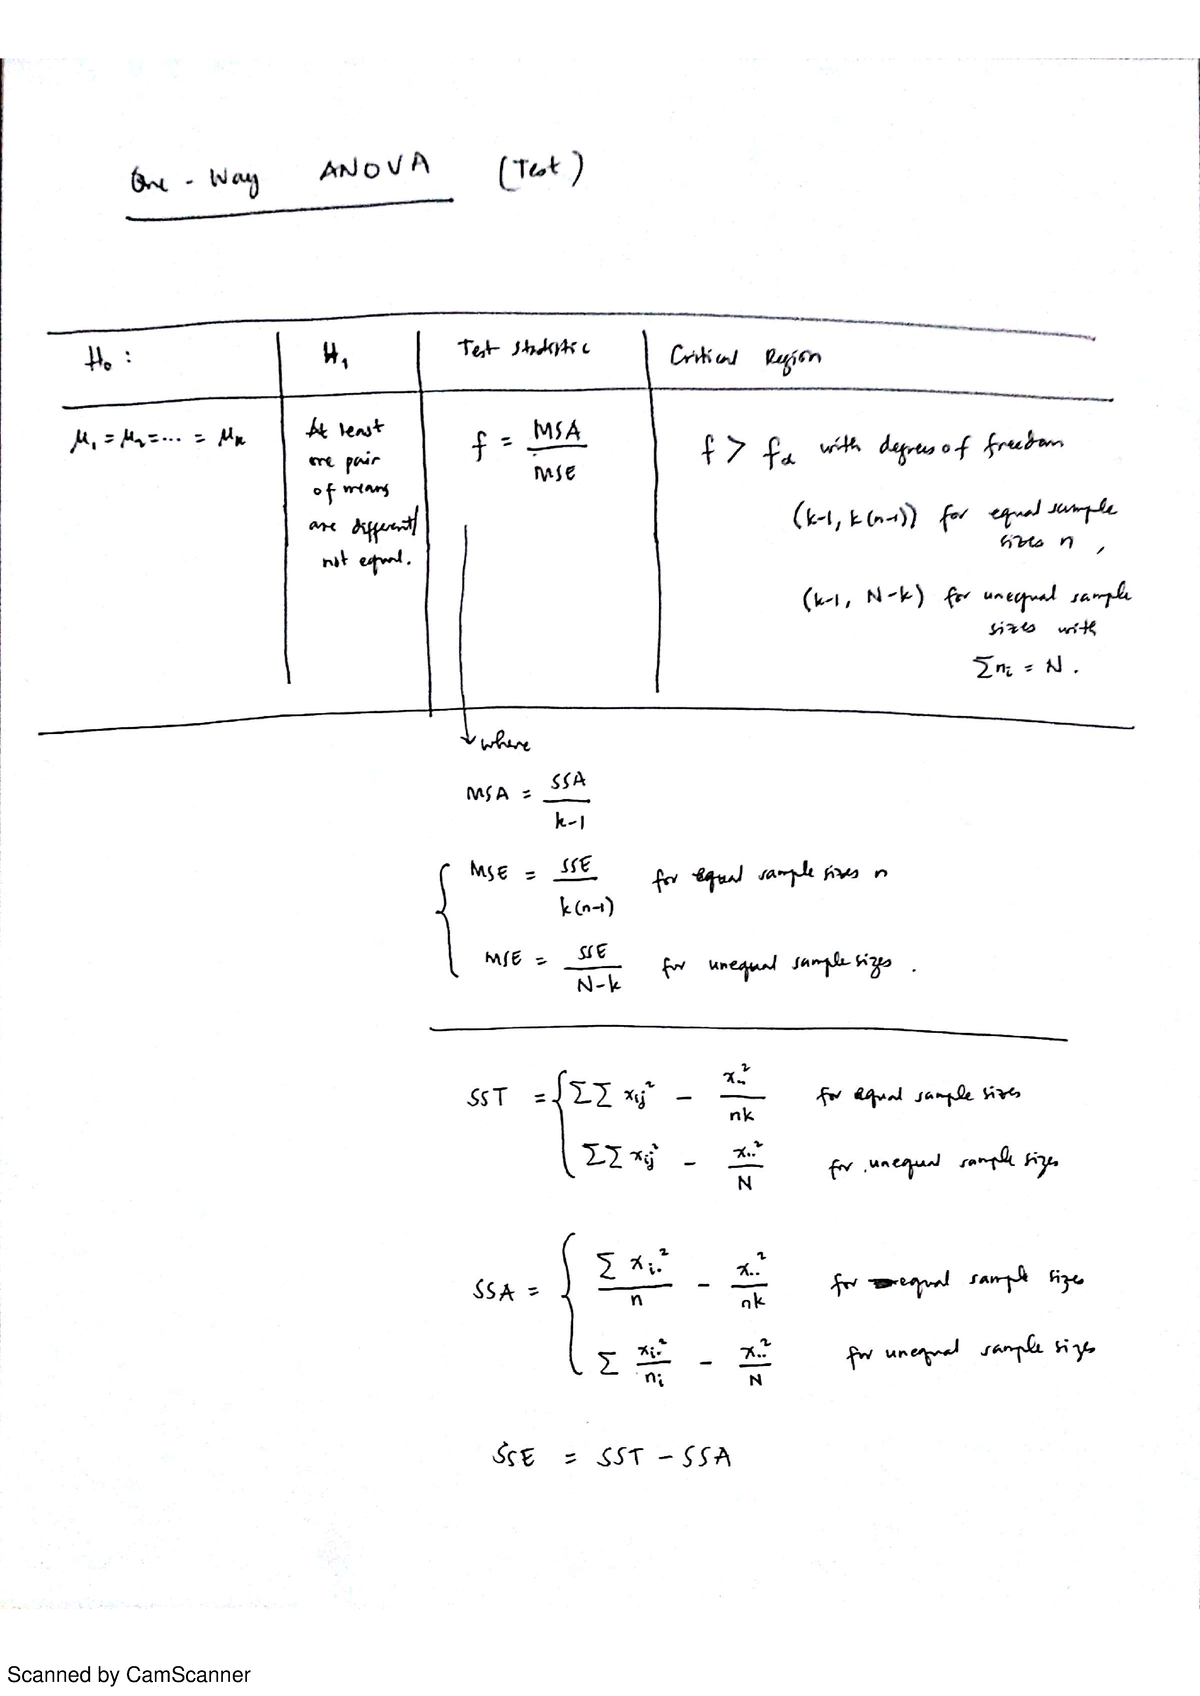 One-Way ANOVA (Test)
H₀ : H₁ Test Statistic Critical Region
μ₁ = μ₂ = ... = μₖ
At least
one pair
of means
are different/
not equal.
f = MSA/MSE
f > f_α with degrees of freedom
(k-1, k(n-1)) for equal sample
sizes n ,
(k-1, N-k) for unequal sample
sizes with
Σnᵢ = N .
where
MSA = SSA/(k-1)
MSE = SSE/(k(n-1)) for equal sample sizes n
MSE = SSE/(N-k) for unequal sample sizes .
SST = { ΣΣ xᵢⱼ² - x..²/nk for equal sample sizes
ΣΣ xᵢⱼ² - x..²/N for unequal sample sizes
SSA = { Σ xᵢ.²/n - x..²/nk for equal sample sizes
Σ xᵢ.²/nᵢ - x..²/N for unequal sample sizes
SSE = SST - SSA
Scanned by CamScanner